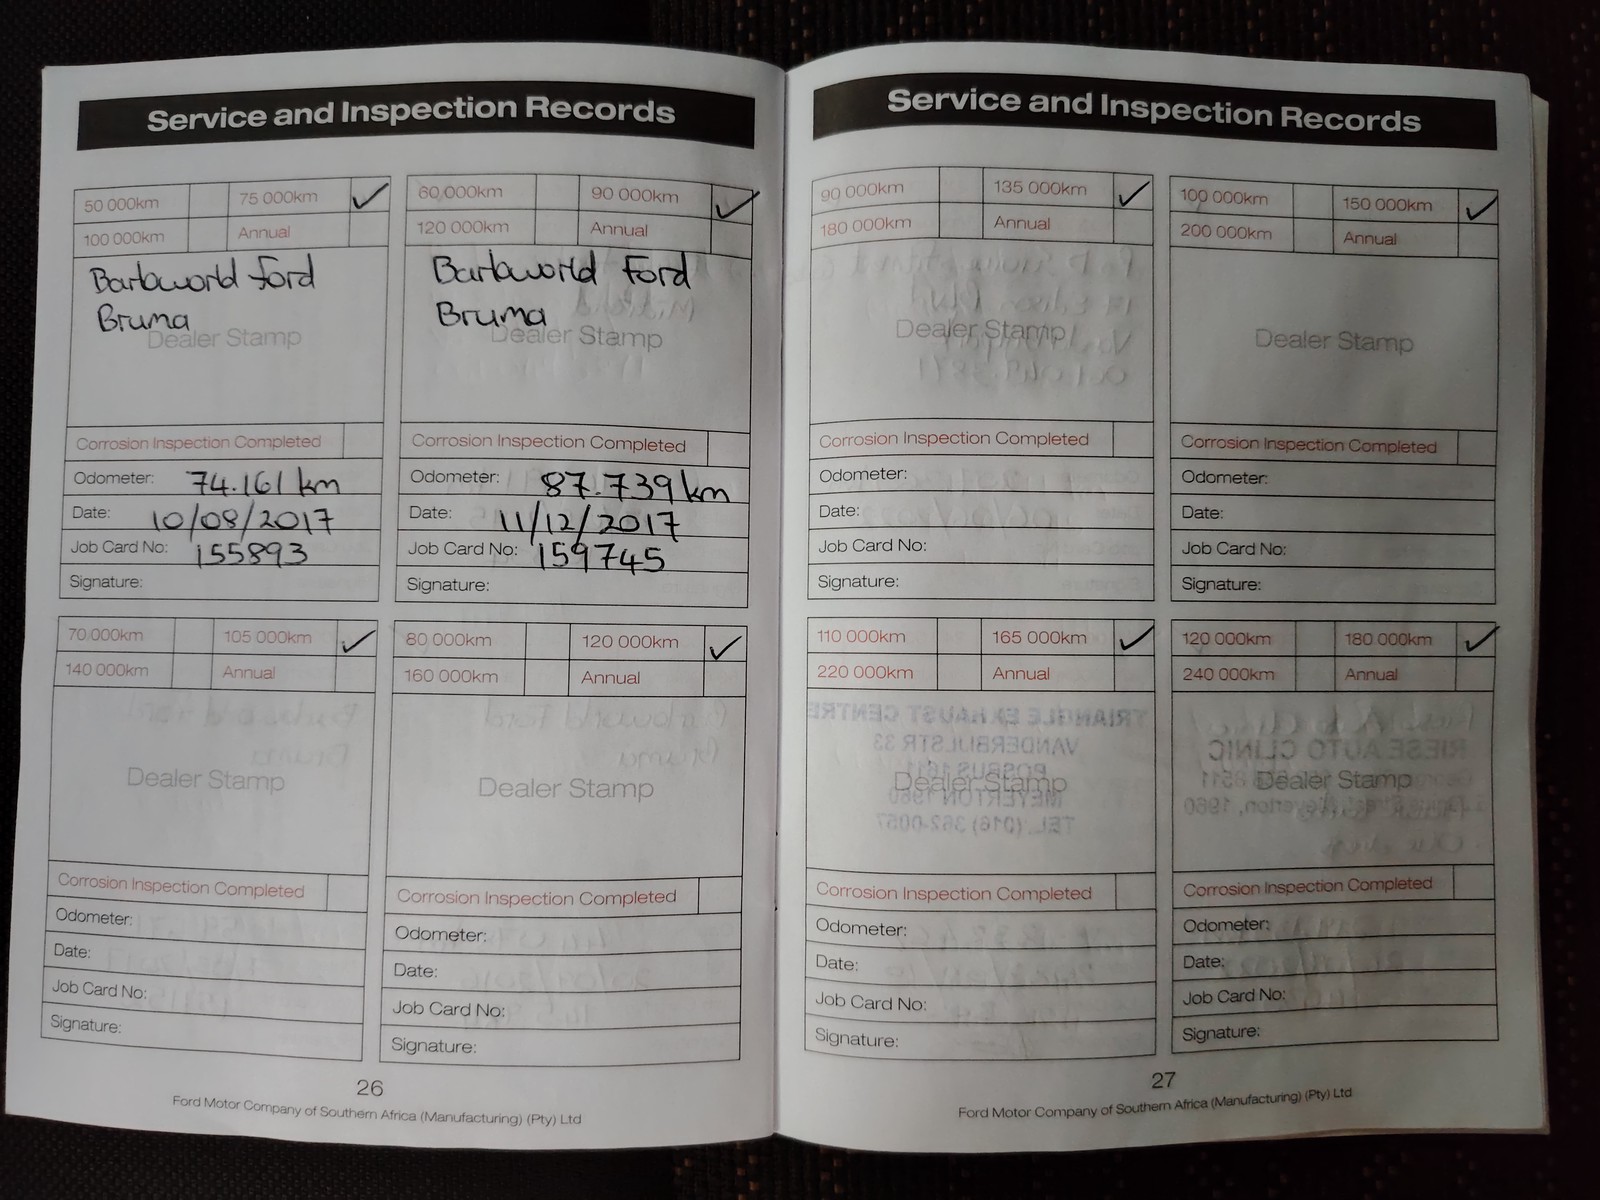 Service and Inspection Records
50 000km 75 000km ✓
100 000km Annual
Barloworld Ford
Bruma
Dealer Stamp
Corrosion Inspection Completed
Odometer: 74.161 km
Date: 10/08/2017
Job Card No: 155893
Signature:
60,000km 90 000km ✓
120 000km Annual
Barloworld Ford
Bruma
Dealer Stamp
Corrosion Inspection Completed
Odometer: 87.739 km
Date: 11/12/2017
Job Card No: 159745
Signature:
70,000km 105 000km ✓
140 000km Annual
Dealer Stamp
Corrosion Inspection Completed
Odometer:
Date:
Job Card No:
Signature:
80 000km 120 000km ✓
160 000km Annual
Dealer Stamp
Corrosion Inspection Completed
Odometer:
Date:
Job Card No:
Signature:
26
Ford Motor Company of Southern Africa (Manufacturing) (Pty) Ltd
Service and Inspection Records
90 000km 135 000km ✓
180 000km Annual
Dealer Stamp
Corrosion Inspection Completed
Odometer:
Date:
Job Card No:
Signature:
100 000km 150 000km ✓
200 000km Annual
Dealer Stamp
Corrosion Inspection Completed
Odometer:
Date:
Job Card No:
Signature:
110 000km 165 000km ✓
220 000km Annual
TRIANGLE EXHAUST CENTRE
VANDERBIJLSTR 33
POSBUS 1611
Dealer Stamp
MEYERTON 1960
TEL. (016) 362-0057
Corrosion Inspection Completed
Odometer:
Date:
Job Card No:
Signature:
120 000km 180 000km ✓
240 000km Annual
RIESE AUTO CLINIC
Dealer Stamp
Meyerton, 1960
Corrosion Inspection Completed
Odometer:
Date:
Job Card No:
Signature:
27
Ford Motor Company of Southern Africa (Manufacturing) (Pty) Ltd